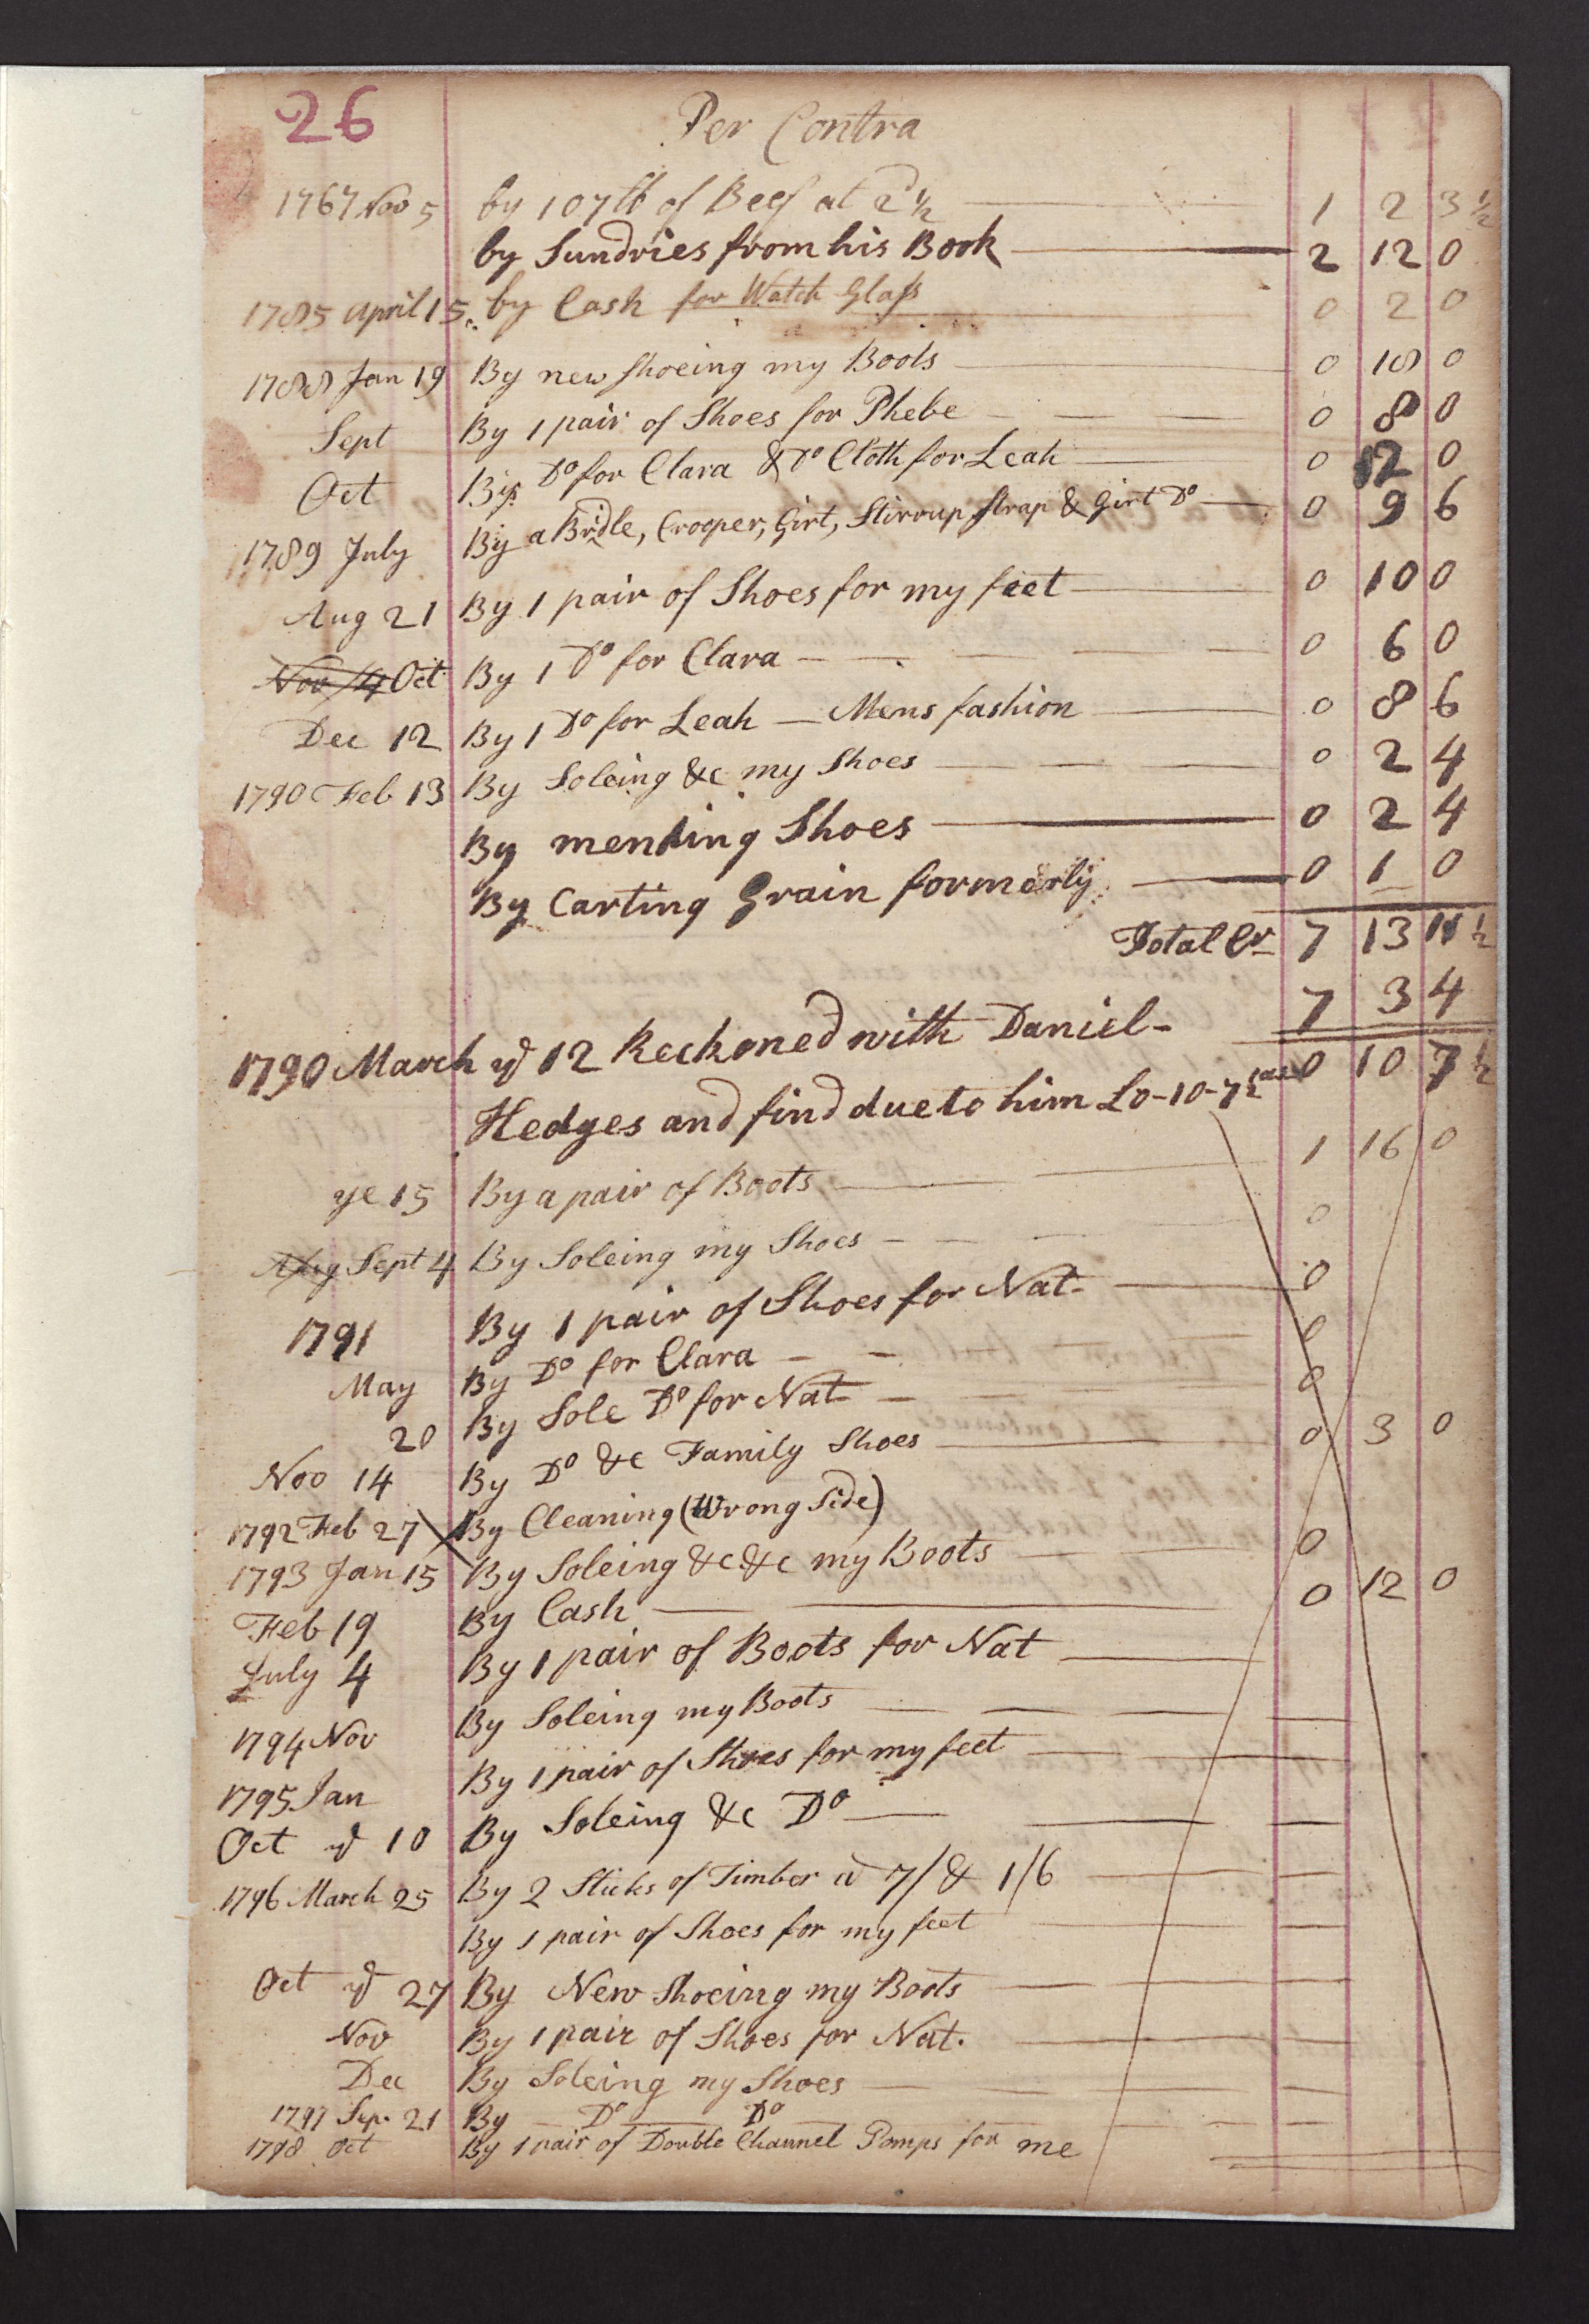 26 Per Contra
1767 Nov 5 by 107 lb of Beef at 2 1/2 1 2 3 1/2
by Sundries from his Book 2 12 0
1785 April 15 by Cash for Watch Glass 0 2 0
1788 Jan 19 By new shoeing my Boots 0 18 0
Sept By 1 pair of Shoes for Phebe 0 8 0
Oct By Do for Clara & Do Cloth for Leah 0 12 0
1789 July By a Bridle, Crooper, Girt, Stirrup strap & Girt Do 0 9 6
Aug 21 By 1 pair of Shoes for my feet 0 10 0
Nov 14 Oct By 1 Do for Clara 0 6 0
Dec 12 By 1 Do for Leah — Mens fashion 0 8 6
1790 Feb 13 By Soleing &c my Shoes 0 2 4
By mending Shoes 0 2 4
By Carting Grain formerly 0 1 0
Total Cr 7 13 11 1/2
7 3 4
1790 March ye 12 Reckoned with Daniel-
Hedges and find due to him £0-10-7 1/2 0 10 7 1/2
ye 15 By a pair of Boots 1 16 0
Aug Sept 4 By Soleing my Shoes 0
1791 By 1 pair of Shoes for Nat- 0
May By Do for Clara 0
20 By Sole Do for Nat 0
Nov 14 By Do &c Family Shoes 0 3 0
1792 Feb 27 By Cleaning (Wrong Side)
1793 Jan 15 By Soleing &c &c my Boots 0
Feb 19 By Cash 0 12 0
July 4 By 1 pair of Boots for Nat
1794 Nov By Soleing my Boots
1795 Jan By 1 pair of Shoes for my feet
Oct ye 10 By Soleing &c Do
1796 March 25 By 2 Sticks of Timber a 7/ & 1/6
By 1 pair of Shoes for my feet
Oct ye 27 By New Shoeing my Boots
Nov By 1 pair of Shoes for Nat.
Dec By Soleing my Shoes
1797 Sep. 21 By Do Do
1798 Oct By 1 pair of Double Channel Pomps for me